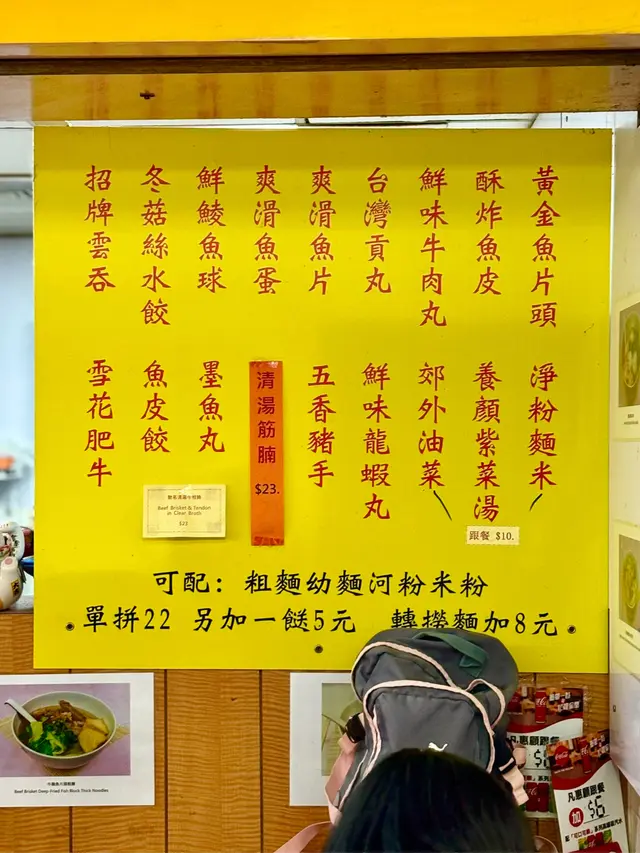 黃金魚片頭
酥炸魚皮
鮮味牛肉丸
台灣貢丸
爽滑魚片
爽滑魚蛋
鮮鯪魚球
冬菇絲水餃
招牌雲吞
淨粉麵米
養顏紫菜湯
跟餐 $10.
郊外油菜
鮮味龍蝦丸
五香豬手
清湯筋腩 $23.
墨魚丸
魚皮餃
Beef Brisket & Tendon
in Clear Broth
$23
雪花肥牛
可配：粗麵幼麵河粉米粉
單拼22 另加一餸5元 轉撈麵加8元
Beef Brisket Deep-Fried Fish Block Thick Noodles
凡惠顧跟餐
Coca-Cola
凡惠顧跟餐
加 $6